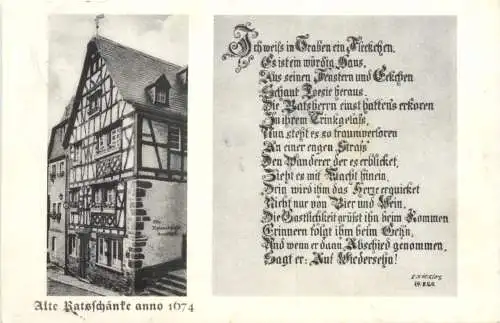 Ich weiß in Traben ein Fleckchen,
Es ist ein würdig Haus,
Aus seinen Fenstern und Eckchen
Schaut Poesie heraus.
Die Ratsherrn einst hatten's erkoren
Zu ihrem Trinkgelaß,
Nun steht es so traumverloren
An einer engen Straß'
Den Wanderer, der es erblicket,
Zieht es mit Macht hinein,
Drin wird ihm das Herze erquicket
Nicht nur von Bier und Wein.
Die Gastlichkeit grüßt ihn beim Kommen
Erinnern folgt ihm beim Gehn,
Und wenn er dann Abschied genommen,
Sagt er: Auf Wiedersehn!
Alte Ratsschänke anno 1674